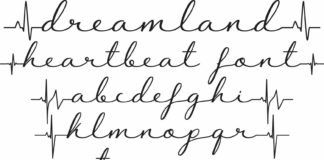 dreamland
heartbeat font
abcdefghi
klmnopqr